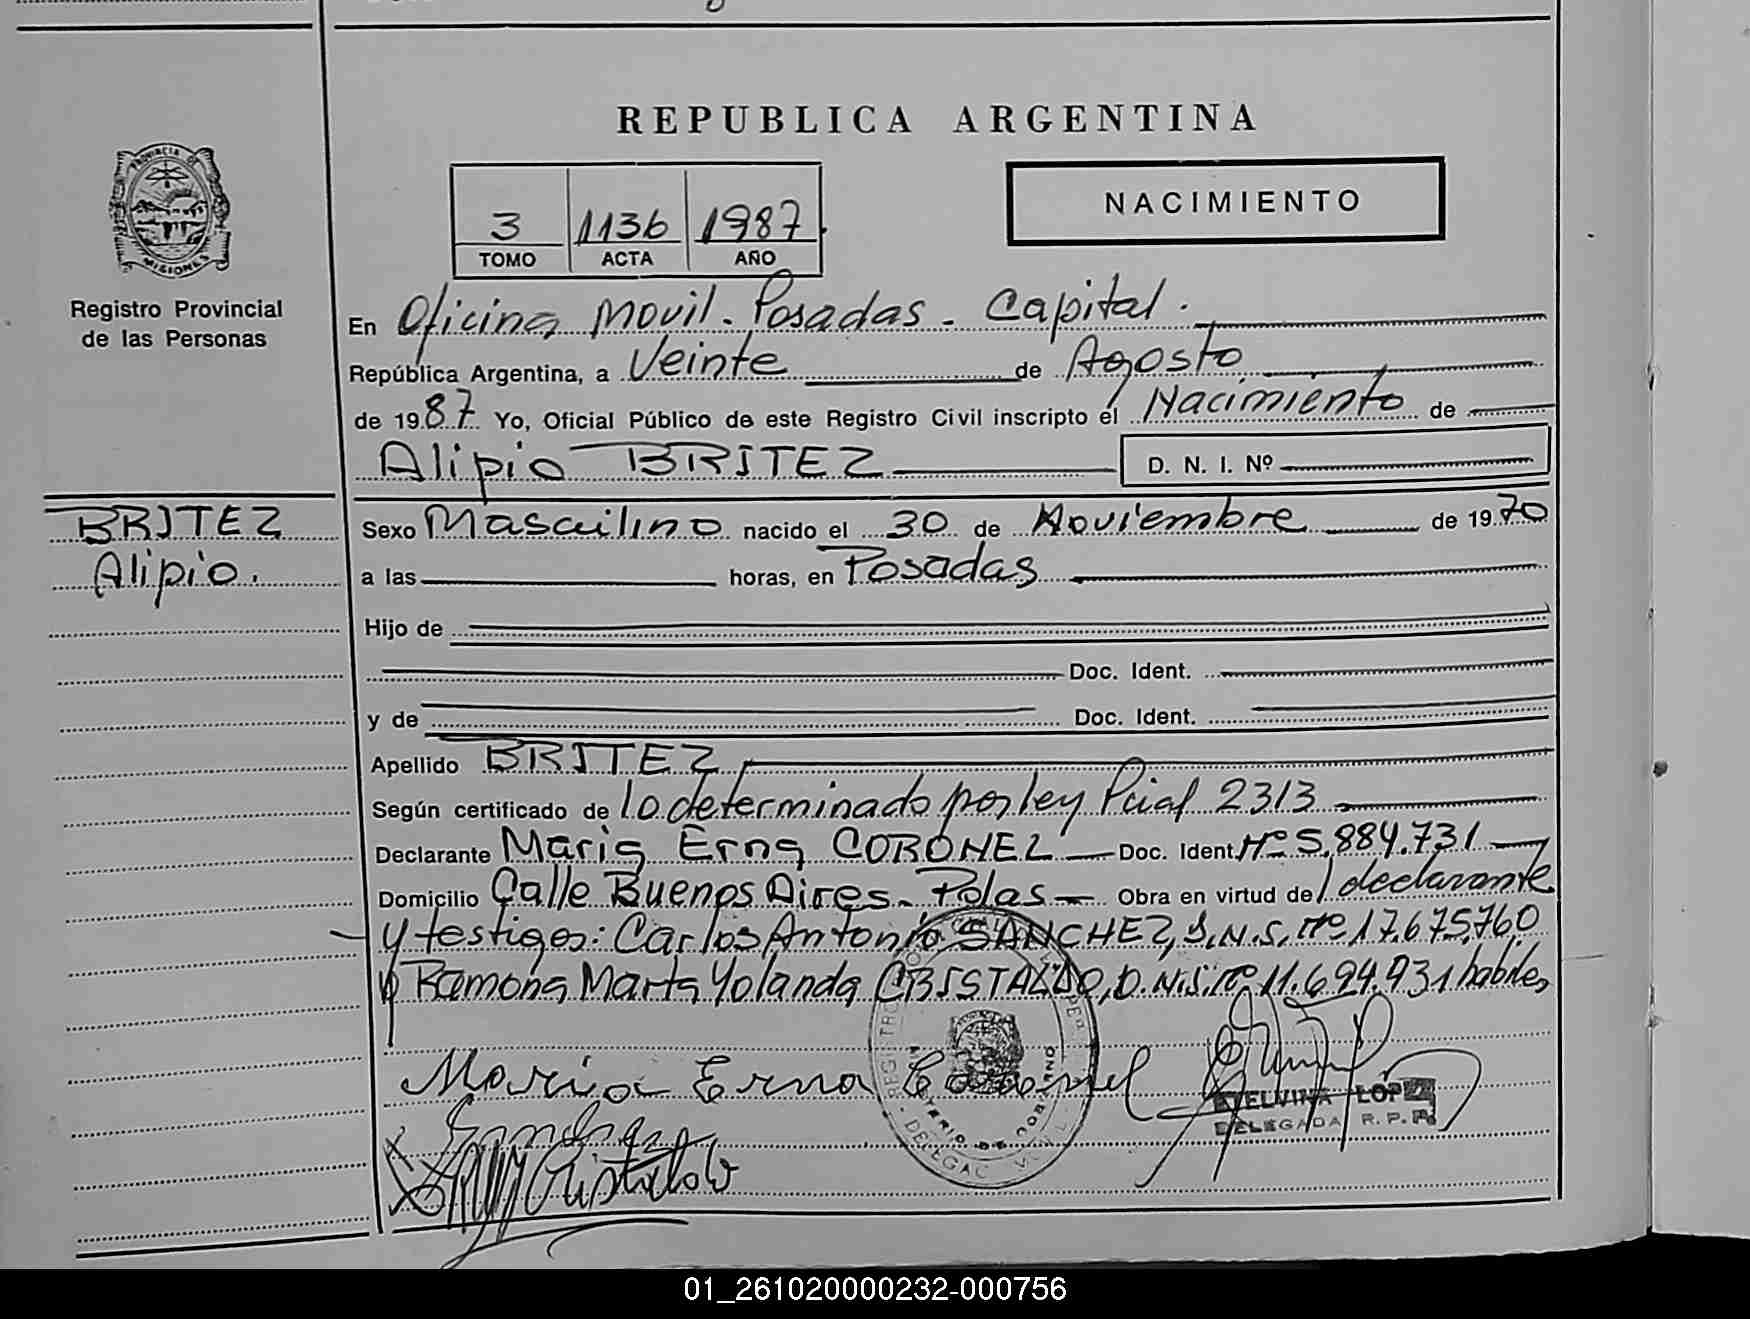 REPUBLICA ARGENTINA
PROVINCIA DE
MISIONES
Registro Provincial
de las Personas
NACIMIENTO
3 1136 1987
TOMO ACTA AÑO
En Oficina Movil - Posadas - Capital.
República Argentina, a Veinte de Agosto
de 1987 Yo, Oficial Público de este Registro Civil inscripto el Nacimiento de
Alipio BRITEZ D. N. I. Nº
BRITEZ
Alipio.
Sexo Masculino nacido el 30 de Noviembre de 1970
a las horas, en Posadas
Hijo de
Doc. Ident.
y de Doc. Ident.
Apellido BRITEZ
Según certificado de lo determinado por ley Pcial 2313
Declarante Maria Erna CORONEL Doc. Ident. Nº 5.884.731
Domicilio Calle Buenos Aires - Pdas - Obra en virtud del declarante
y testigos: Carlos Antonio SANCHEZ, D.N.I. Nº 17.675.760
y Ramona Marta Yolanda CRISTALDO, D.N.I. Nº 11.694.931 habiles
Maria Erna Coronel
ETELVINA LOPEZ
DELEGADA R.P.P.
Sanchez
Cristaldo
01_261020000232-000756